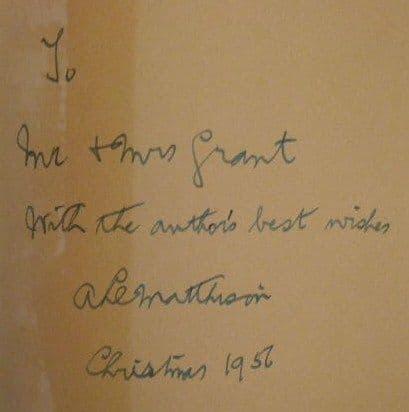 To
Mr + Mrs Grant
With the author's best wishes
A L Matthison
Christmas 1956